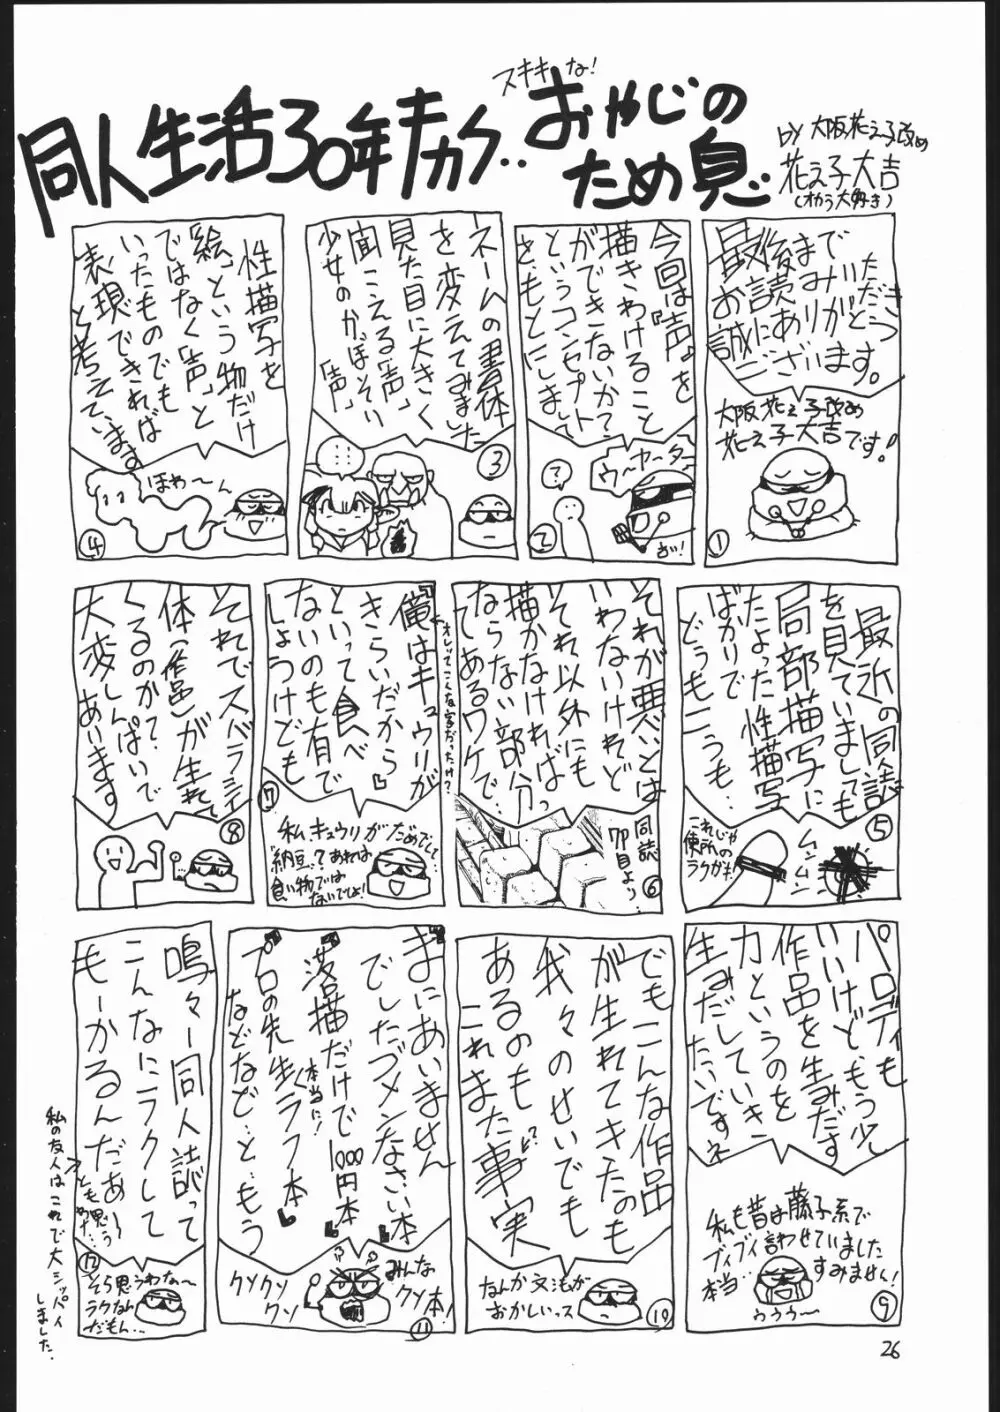 スキキな!
同人生活30年キカク‥おやじの
ため息
by 大阪花え子改め
花え子大吉
(オカう大好き)
最後まで
お読みいただき
誠にありがとう
ございます。
大阪花え子改め
花え子大吉です!
①
今回は『声』を
描きわけること
ができないかて
というコンセプト
をもとにしまして
?
ウ〜ヤ〜タ〜
②
ネームの書体
を変えてみました
見た目に大きく
聞こえる「声」
少女のかぼそい
「声」
③
性描写を
「絵」という物だけ
ではなく「声」と
いったものでも
表現できれば
と考えています
ほわ〜ん
④
最近の同誌
を見ていましても
局部描写に
たよった性描写
ばかりで
どうもこうも…
これじゃ
便所の
ラクガキ!
ムンムン
⑤
それが悪いとは
いわないけれど
それ以外にも
描かなければ
ならない部分っ
てあるワケで…
同誌
7P目より…
⑥
俺はキュウリが
きらいだから
といって食べ
ないのも有で
しょうけども
オレってこんな字だったけ?
私、キュウリがだめでして…
「納豆」?あれは
食い物では
ないでしょ!
⑦
それでスバラシイ
体(作品)が生れて
くるのかて、
大変しんぱいで
あります
⑧
パロディも
いいけどもう少し
作品を生みだす
力というのを
生みだしていき
たいですネ
私も昔は藤子系で
ブイブイ言わせていました
本当…すみません!
うううう〜
⑨
でもこんな作品
が生れてきたのも
我々のせいでも
あるのも
これまた事実
なんか文法が
おかしいっス
⑩
『まにあいません
でしたゴメンなさい本』
『落描だけで1000円本』
本当に!
『プロの先生〈ラフ本』
などなど…ともう
クソクソ
クソ
みんな
クソ本!
⑪
鳴々ー同人誌って
こんなにラクして
もーかるんだあ〜
とも思う
そら思うわな〜
ラクなん
だもん…
⑫
私の友人はこれで大シッパイ
しました.
26